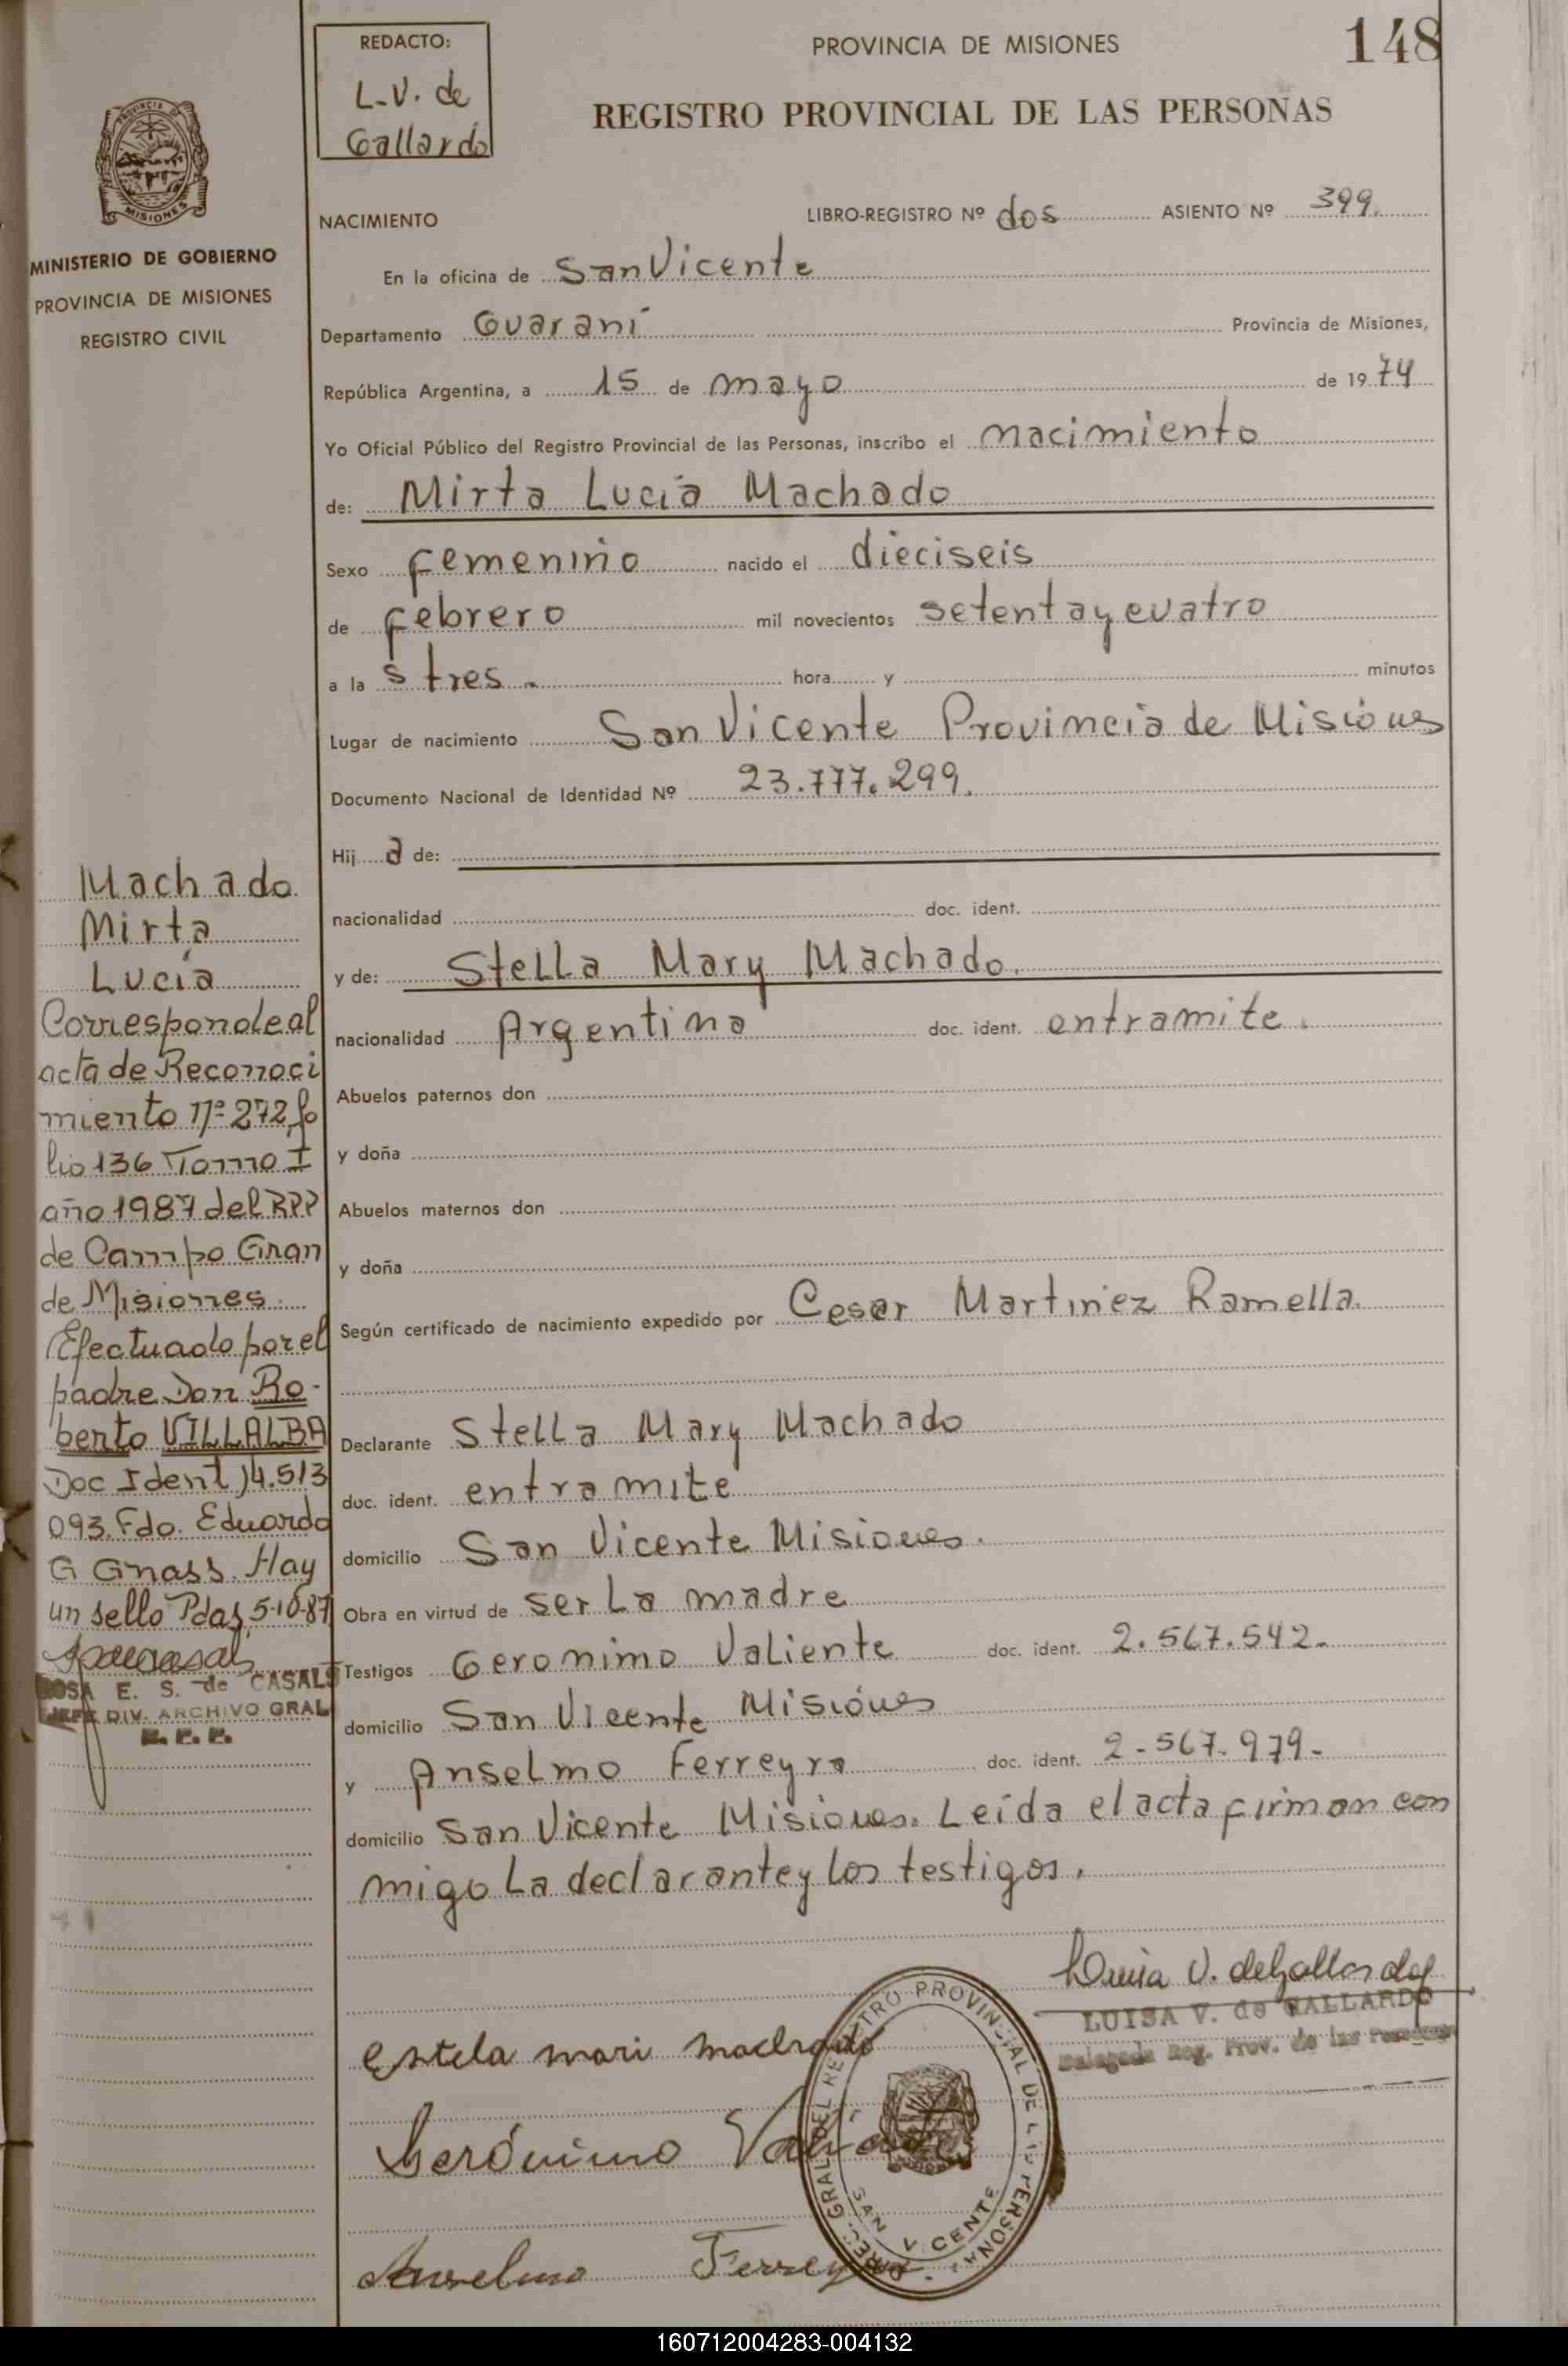 REDACTO:
L.V. de
Gallardo
PROVINCIA DE MISIONES
148
REGISTRO PROVINCIAL DE LAS PERSONAS
PROVINCIA
MISIONES
MINISTERIO DE GOBIERNO
PROVINCIA DE MISIONES
REGISTRO CIVIL
NACIMIENTO
LIBRO-REGISTRO Nº dos ASIENTO Nº 399.
En la oficina de San Vicente
Departamento Guaraní Provincia de Misiones,
República Argentina, a 15 de mayo de 1974
Yo Oficial Público del Registro Provincial de las Personas, inscribo el nacimiento
de: Mirta Lucía Machado
Sexo femenino nacido el dieciseis
de febrero mil novecientos setenta y cuatro
a la s tres. hora y minutos
Lugar de nacimiento San Vicente Provincia de Misiones
Documento Nacional de Identidad Nº 23.777.299.
Hij a de:
nacionalidad doc. ident.
y de: Stella Mary Machado.
nacionalidad Argentina doc. ident. entramite.
Abuelos paternos don
y doña
Abuelos maternos don
y doña
Según certificado de nacimiento expedido por Cesar Martinez Ramella.
Declarante Stella Mary Machado
doc. ident. entramite
domicilio San Vicente Misiones.
Obra en virtud de ser La madre
Testigos Geronimo Valiente doc. ident. 2.567.542.
domicilio San Vicente Misiones
y Anselmo Ferreyra doc. ident. 2-567.979-
domicilio San Vicente Misiones. Leída el acta firman con
migo La declarante y los testigos.
Machado
Mirta
Lucía
Corresponde al
acta de Reconoci
miento nº 272 fo
lio 136 Tomo I
año 1987 del RPP
de Campo Gran
de Misiones.
Efectuado por el
padre Don Ro-
berto VILLALBA
Doc Ident 14.513
093. Fdo. Eduardo
G Gnass. Hay
un sello Pdas 5-10-87
ROSA E. S. de CASALS
JEFE DIV. ARCHIVO GRAL
R. P. P.
Luisa V. de Gallardo
LUISA V. de GALLARDO
Delegada Reg. Prov. de las Personas
Estela mari machado
Gerónimo Valiente
Anselmo Ferreyra
SAN VICENTE
160712004283-004132